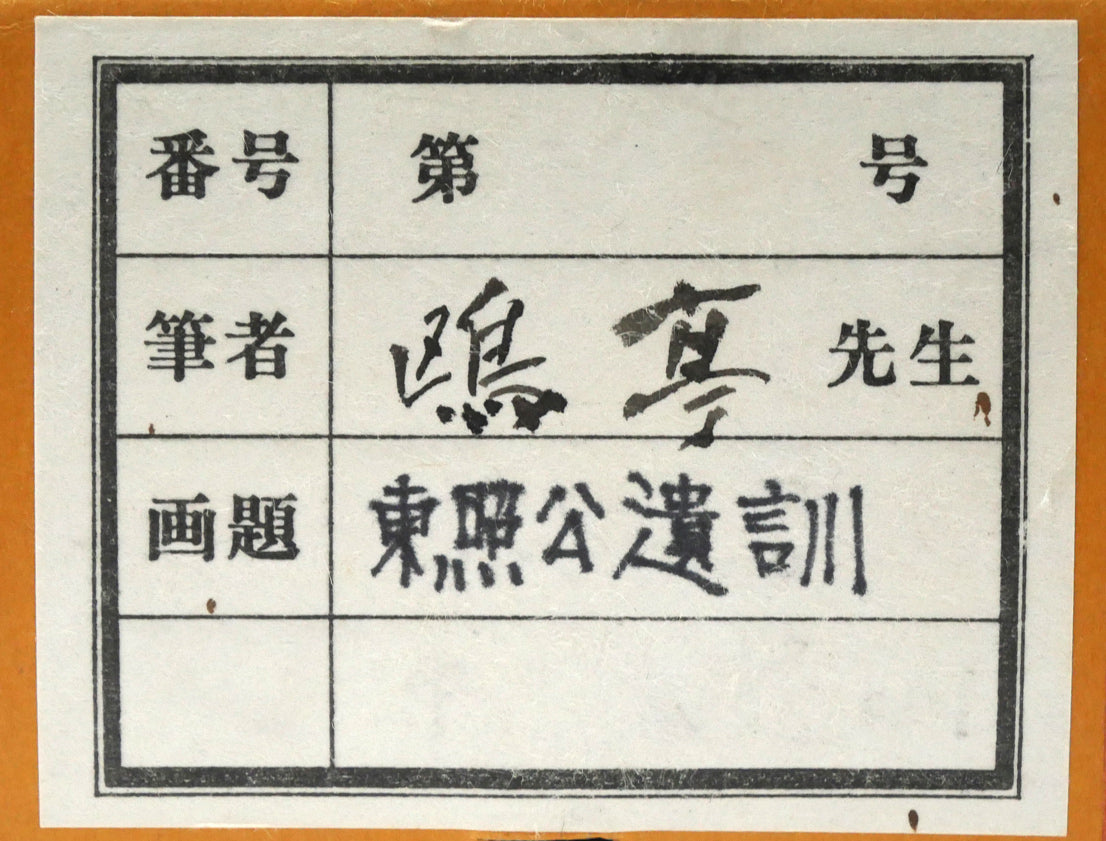 番号 第 号
筆者 鴎亭 先生
画題 東照公遺訓